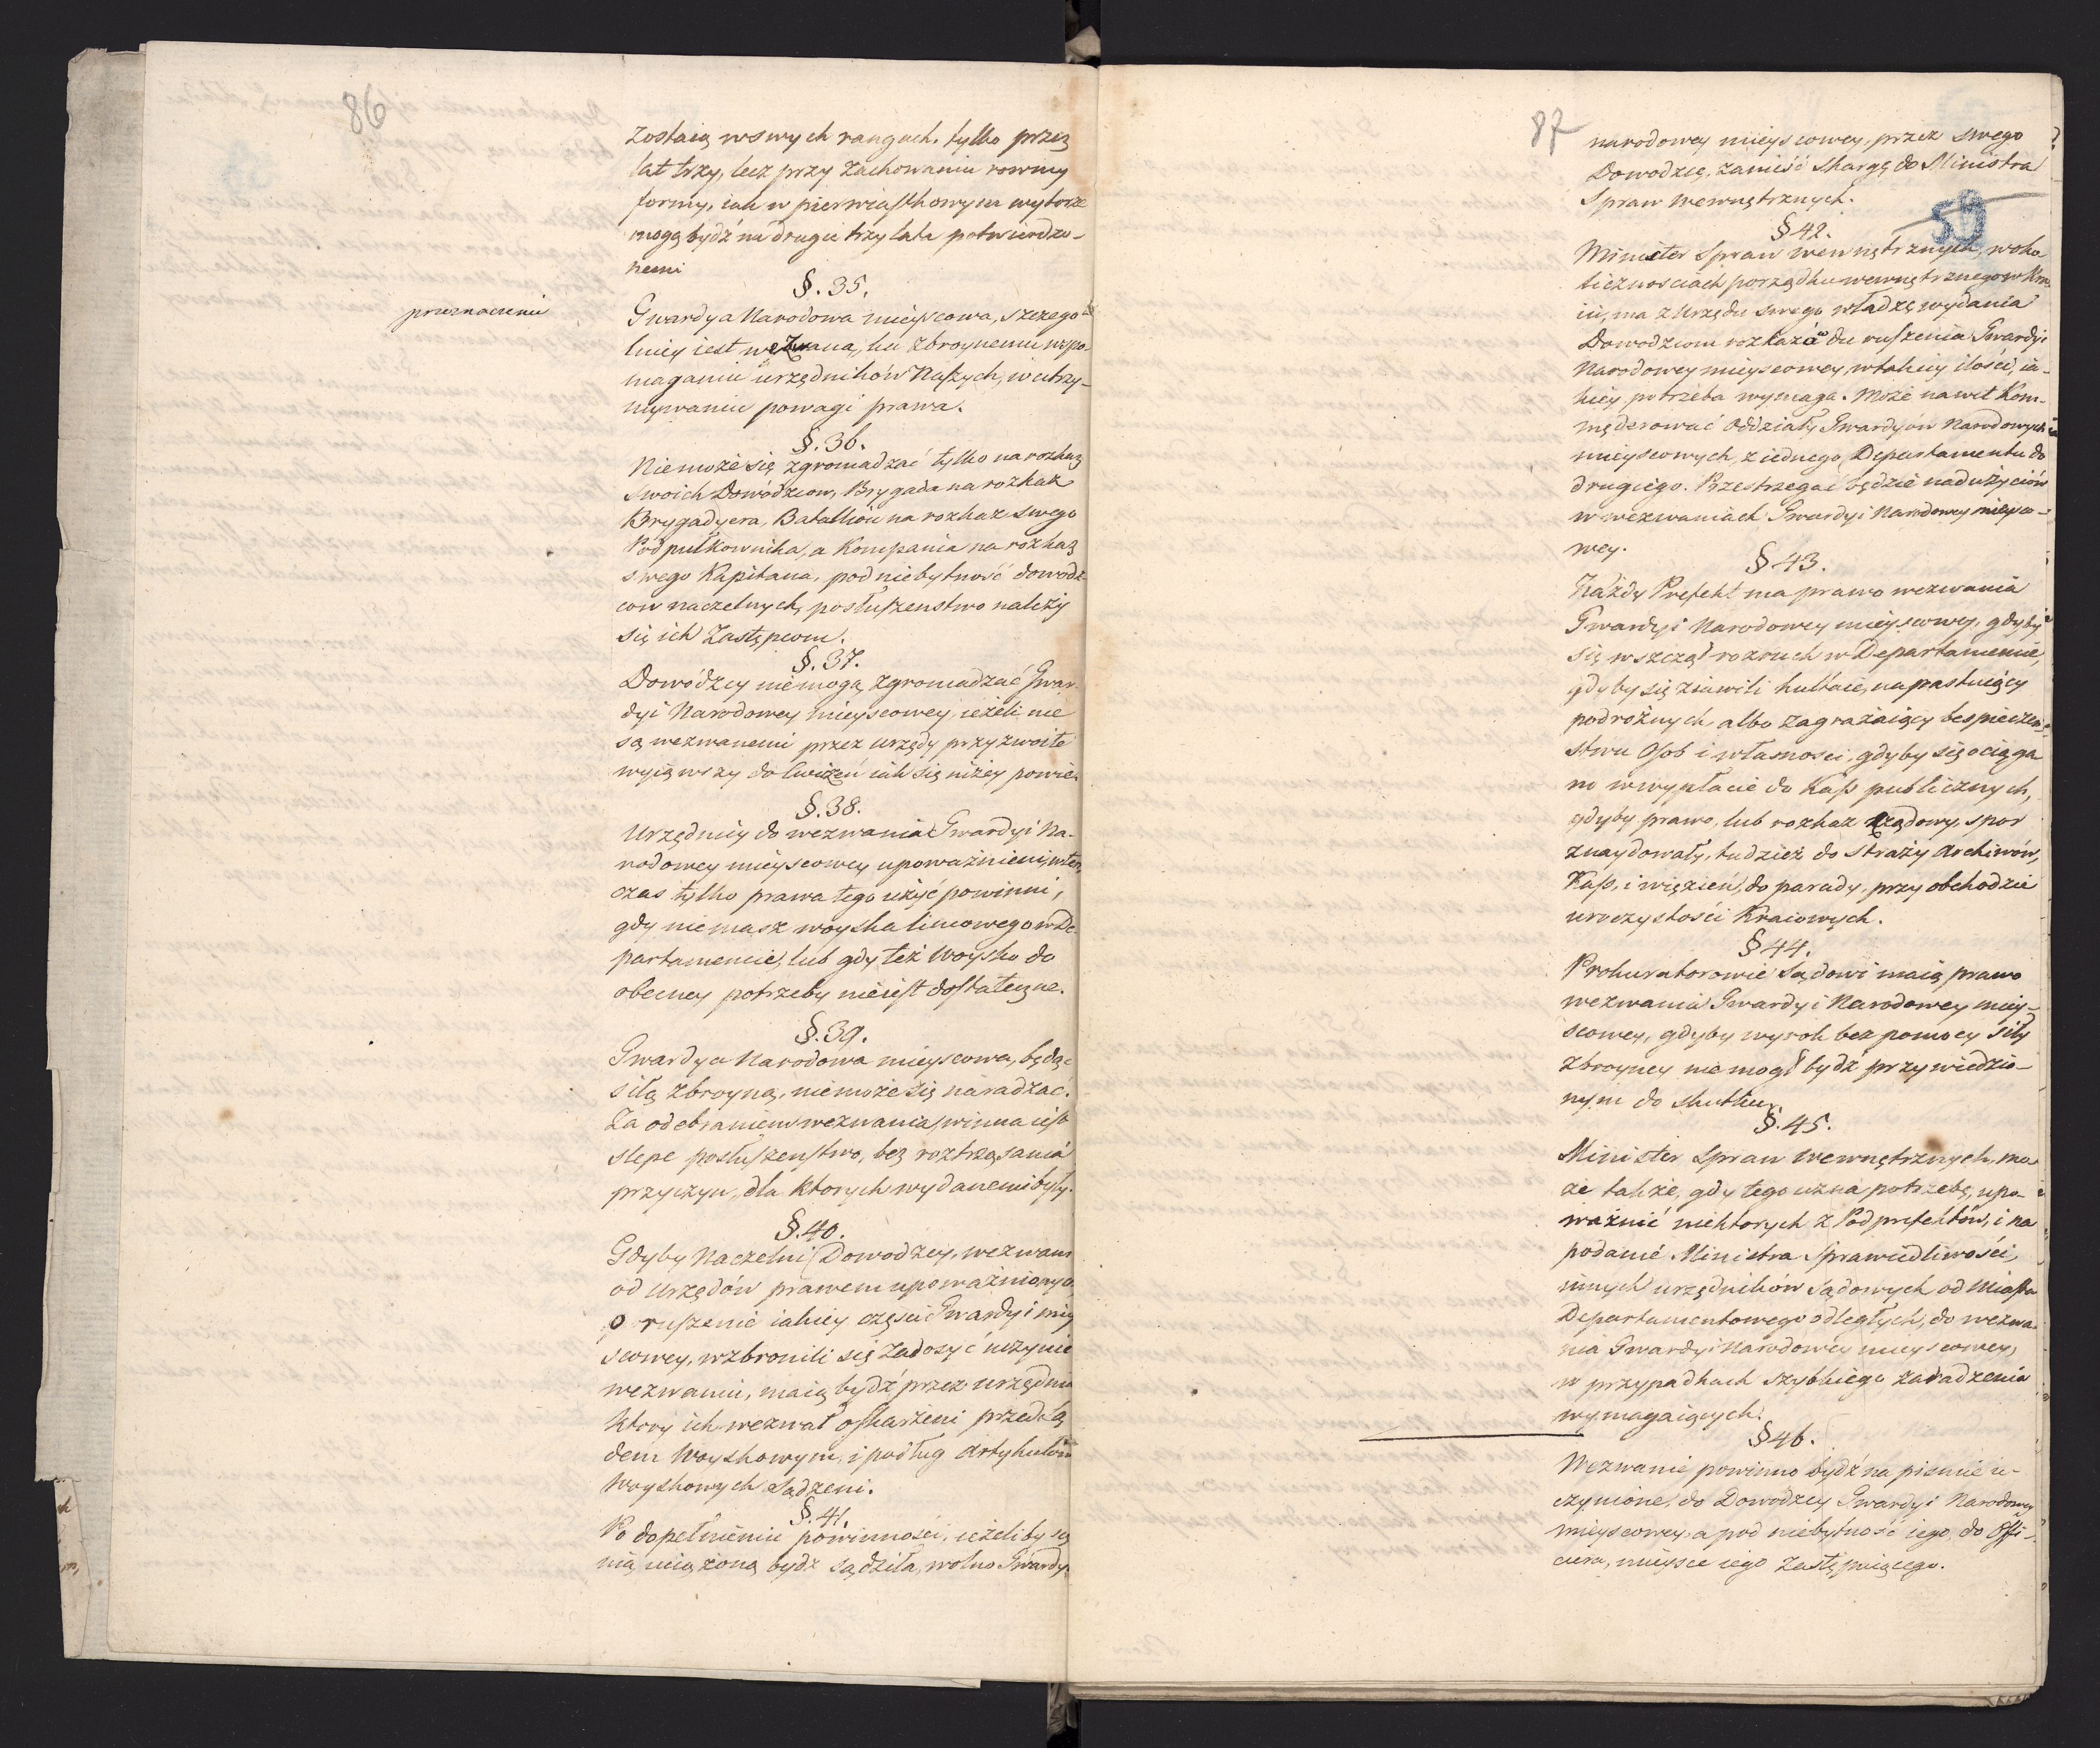 86
zostaią w swych rangach, tylko przez
lat trzy, lecz przy zachowaniu rowney
formy, iak w pierwiastkowym wyborze
mogą bydź na drugie trzy lata potwierdzo-
nemi
§. 35.
przeznaczenie
Gwardya Narodowa mieyscowa, szczego-
lniey iest wezwaną, ku zbroynemu wspo-
maganiu urzędników Naszych, w utrzy-
mywaniu powagi prawa.
§. 36.
Niemoże się zgromadzać tylko na rozkaz
swoich Dowódzcow, Brygada na rozkaz
Brygadyera, Batallion na rozkaz swego
Podpułkownika, a Kompania na rozkaz
swego Kapitana, pod niebytność dowodz
cow naczelnych, posłuszenstwo należy
się ich Zastępcom.
§. 37.
Dowódzcy niemogą zgromadzać Gwar-
dyi Narodowey mieyscowey, ieżeli nie
są wezwanemi przez urzędy przyzwoite
wyiąwszy do ćwiczeń iak się niżey powie.
§. 38.
Urzędnicy do wezwania Gwardyi Na-
rodowey mieyscowey upoważnieni, wten
czas tylko prawa tego użyć powinni,
gdy niemasz woyska liniowego w De
partamencie, lub gdy też woysko do
obecney potrzeby nieiest dostateczne.
§. 39.
Gwardya Narodowa mieyscowa, będąc
siłą zbroyną, niemoże się naradzać.
Za odebraniem wezwania, winna iest
slepe posłuszenstwo, bez roztrząsania
przyczyn, dla ktorych wydanemi były.
§. 40.
Gdyby Naczelni Dowodzcy, wezwani
od Urzędów prawem upoważnionych
o ruszenie iakiey części Gwardyi miey
scowey, wzbronili się zadosyć uczynić
wezwaniu, maią bydź przez urzędnika
ktory ich wezwał oskarżeni przed Są
dem Woyskowym, i podług Artykułów
Woyskowych sądzeni.
§. 41.
Po dopełnieniu powinności, ieżeliby się
nią uciążoną bydź sądziła, wolno Gwardyi
87
narodowey mieyscowey, przez swego
Dowodzcę, zanieść skargę do Ministra
Spraw wewnętrznych.
59
§ 42.
Minister Spraw wewnętrznych, w oko
licznościach porządku wewnętrznego w Kra
iu, ma z Urzędu swego władzę wydania
Dowodzcom rozkazów do ruszenia Gwardyi
Narodowey mieyscowey, w takiey ilości, ia-
kiey potrzeba wymaga. Może nawet Kom-
menderować Oddziały Gwardyów Narodowych
mieyscowych, z iednego Departamentu do
drugiego. Przestrzegać będzie nadużyciów
w wezwaniach Gwardyi Narodowey mieysco-
wey.
§ 43.
Każdy Prefekt ma prawo wezwania
Gwardyi Narodowey mieyscowey, gdyby
się wszczął rozruch w Departamencie,
gdyby się ziawili hultaie, napastuiący
podrożnych albo zagrażaiący bespieczen
stwu Osob i własności, gdyby się ociąga
no w wypłacie do Kass publicznych,
gdyby prawo, lub rozkaz rządowy, spor
znaydowały, tudzież do straży Archiwów,
Kass, i więzień, do parady, przy obchodzie
uroczystości Kraiowych.
§ 44.
Prokuratorowie Sądowi maią prawo
wezwania Gwardyi Narodowey miey-
scowey, gdyby wyrok bez pomocy siły
zbroyney nie mogł bydź przywiedzio-
nym do skutku.
§. 45.
Minister Spraw wewnętrznych, mo
że także, gdy tego uzna potrzebę, upo-
ważnić niektorych z Podprefektów, i na
podanie Ministra Sprawiedliwości,
innych urzędników Sądowych od Miasta
Departamentowego odległych, do wezwa-
nia Gwardyi Narodowey mieyscowey,
w przypadkach szybkiego zaradzenia
wymagaiących.
§ 46.
Wezwanie powinno bydź na pismie u-
czynione, do Dowodzcy Gwardyi Narodowey
mieyscowey, a pod niebytność iego, do Offi-
cera, mieysce iego zastępuiącego.